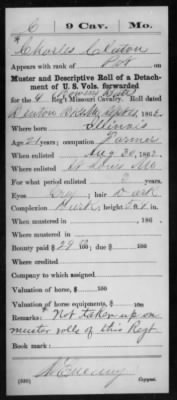 C | 9 Cav. | Mo.
Charles Clinton
Appears with rank of Pvt on
Muster and Descriptive Roll of a Detachment
of U. S. Vols. forwarded
for the 9 Bowens Batt
Reg't Missouri Cavalry. Roll dated
Benton Bks Mo, Sept, 1862.
Where born Illinois
Age 21 years; occupation Farmer
When enlisted Aug 30, 1862.
Where enlisted St Louis Mo
For what period enlisted 3 years.
Eyes ; hair Dark
Complexion Dark; height ft. in.
When mustered in , 186 .
Where mustered in
Bounty paid $ 100; due $ 100
Where credited
Company to which assigned
Valuation of horse, $ 100
Valuation of horse equipments, $ 100
Remarks: * Not taken up on
muster rolls of this Regt
Book mark:
(339) Copyist.